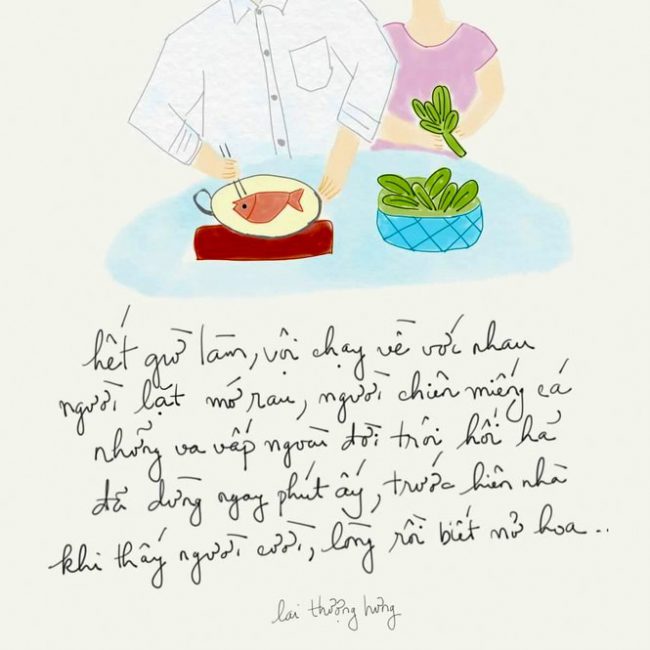 hết giờ làm, vội chạy về với nhau
người lặt mớ rau, người chiên miếng cá
những va vấp ngoài đời trôi hối hả
đã dừng ngay phút ấy, trước hiên nhà
khi thấy người cười, lòng rồi biết nở hoa..
lai thượng hưng